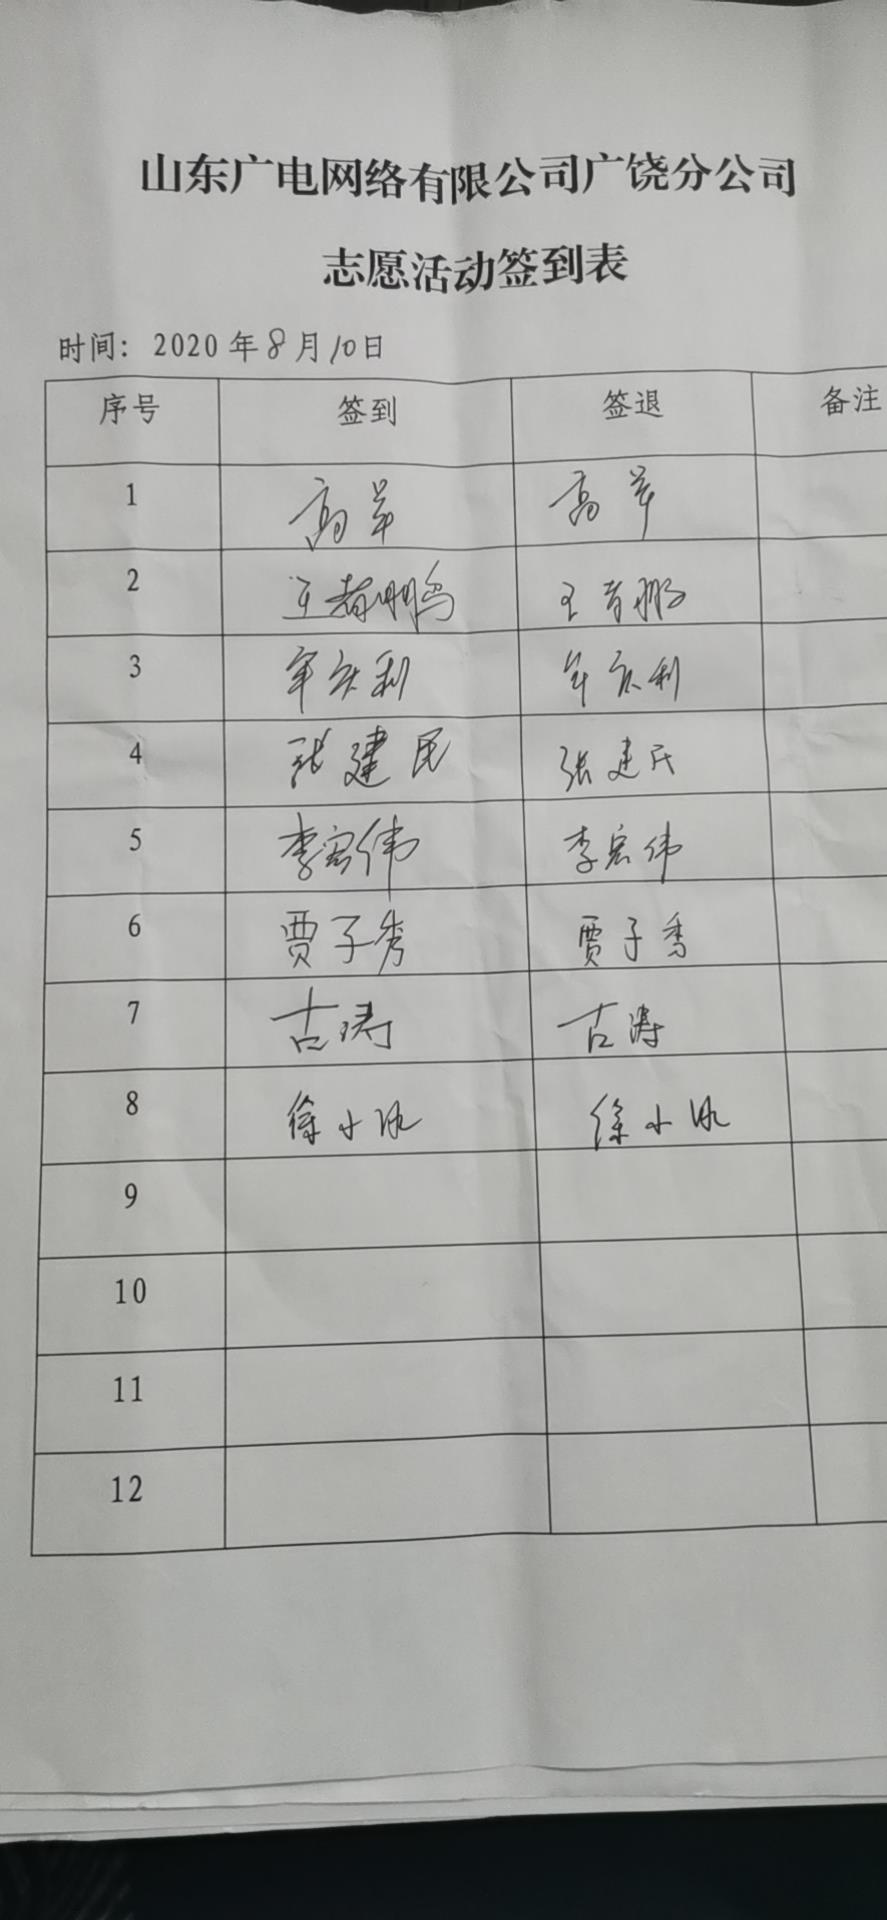 山东广电网络有限公司广饶分公司
志愿活动签到表
时间: 2020年8月10日
序号 签到 签退 备注
1 高苹 高苹
2
3 利 利
4 张建民 张建民
5 李宏伟 李宏伟
6 贾子秀 贾子秀
7 古涛 古涛
8 徐小 徐小
9
10
11
12